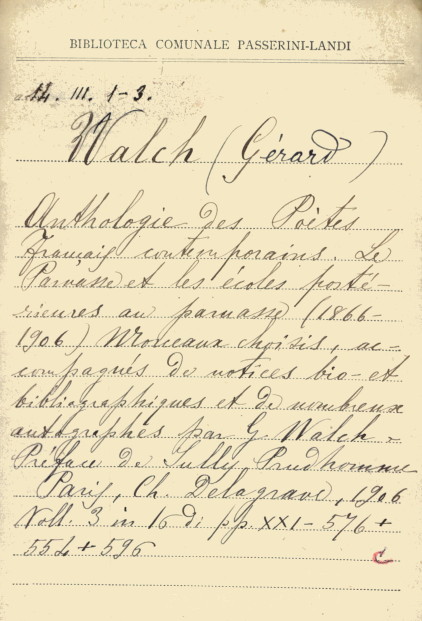 BIBLIOTECA COMUNALE PASSERINI-LANDI
14. III. 1-3.
Walch (Gérard)
Anthologie des Poètes
Français contemporains. Le
Parnasse et les écoles posté-
rieures au parnasse (1866-
1906) Morceaux choisis, ac-
compagnés de notices bio- et
bibliographiques et de nombreux
autographes par G Walch -
Préface de Sully Prudhomme
Paris, Ch. Delagrave, 1906
Voll. 3 in 16 di pp. XXI - 576 +
554 + 596
C